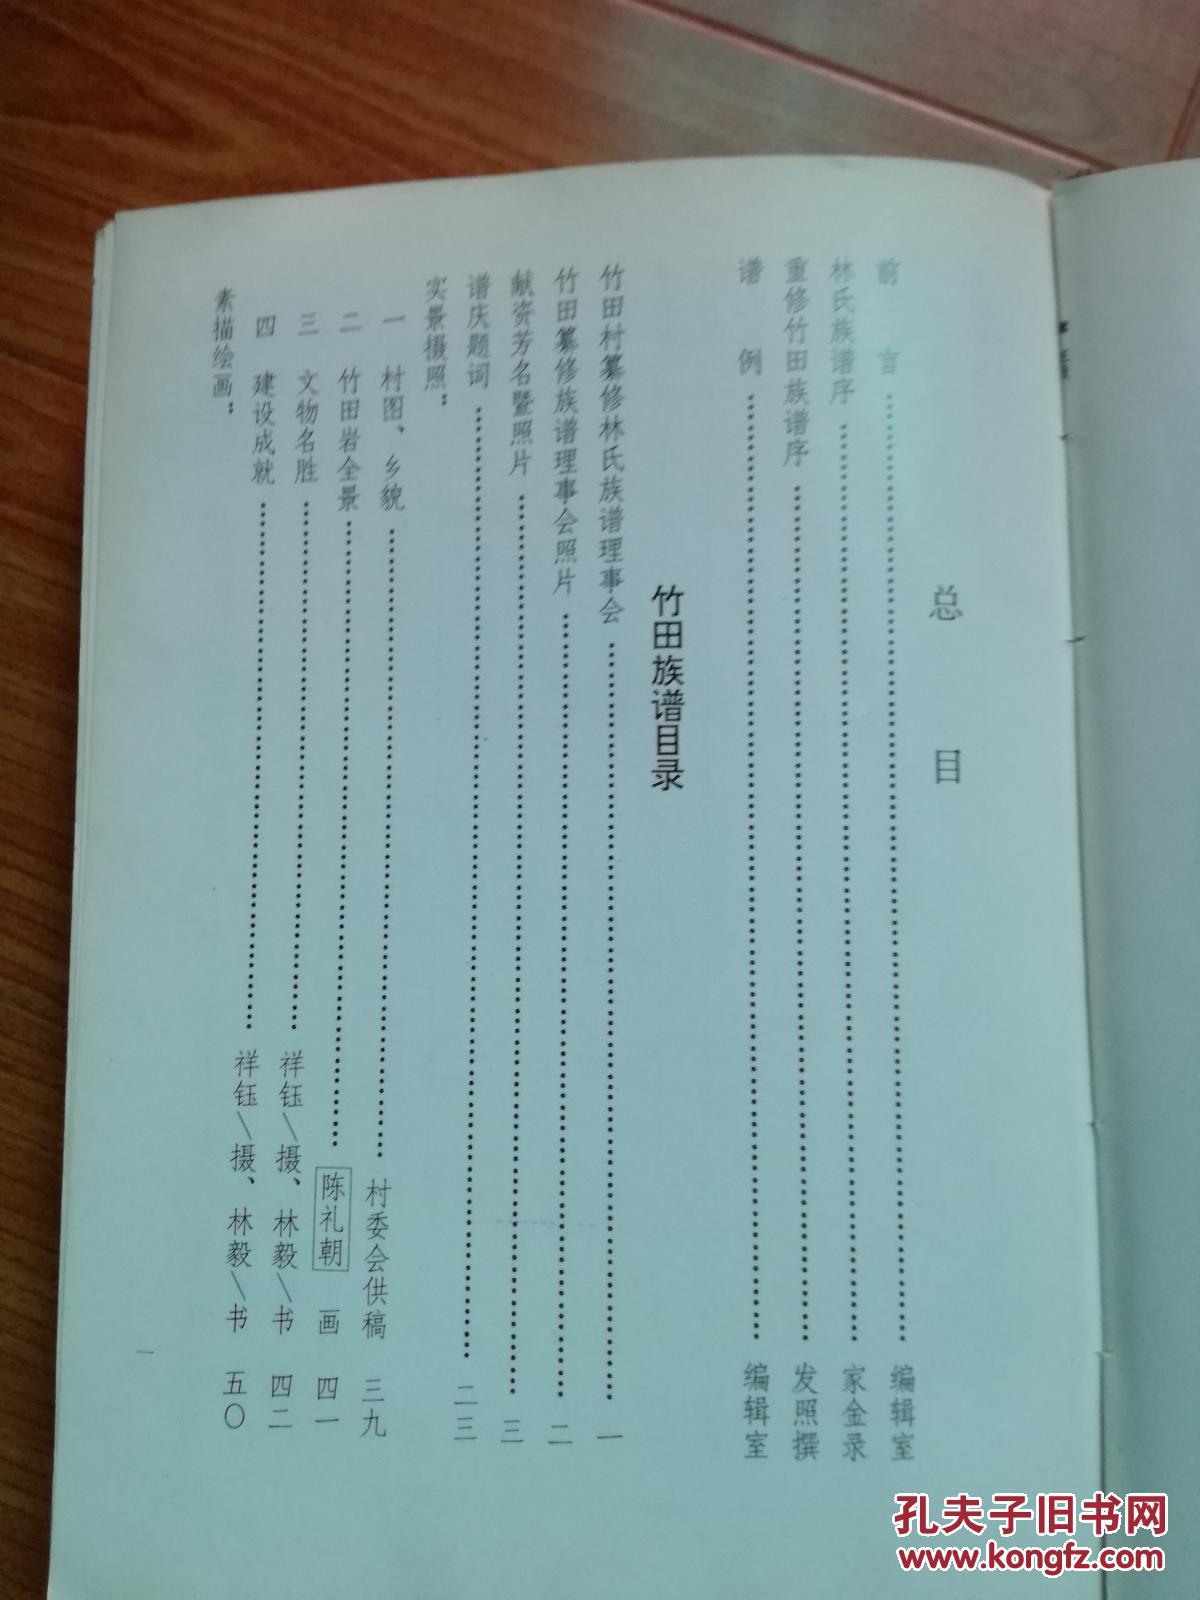 总目
前言……编辑室
林氏族谱序……家金录
重修竹田族谱序……发照撰
谱例……编辑室
竹田族谱目录
竹田村纂修林氏族谱理事会……一
竹田纂修族谱理事会照片……二
献资芳名暨照片……三
谱庆题词……二三
实景摄照：
一 村图、乡貌……村委会供稿 三九
二 竹田岩全景……陈礼朝 画 四一
三 文物名胜……祥钰\摄、林毅\书 四二
四 建设成就……祥钰\摄、林毅\书 五〇
素描绘画：
一
孔夫子旧书网
www.kongfz.com